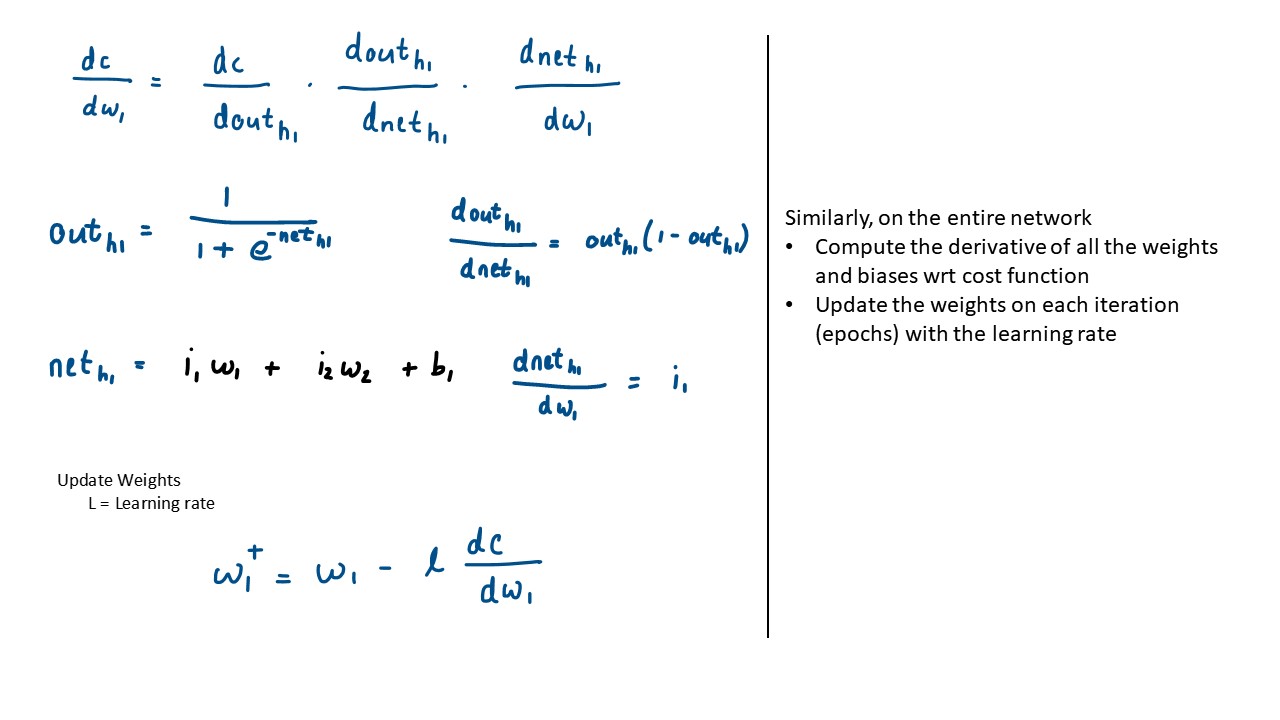 dc/dw₁ = dc/dout_h₁ · dout_h₁/dnet_h₁ · dnet_h₁/dw₁
out_h₁ = 1/(1 + e^(-net_h₁))    dout_h₁/dnet_h₁ = out_h₁(1 - out_h₁)
net_h₁ = i₁ w₁ + i₂ w₂ + b₁    dnet_h₁/dw₁ = i₁
Update Weights
L = Learning rate
w₁⁺ = w₁ - l dc/dw₁
Similarly, on the entire network
• Compute the derivative of all the weights
and biases wrt cost function
• Update the weights on each iteration
(epochs) with the learning rate